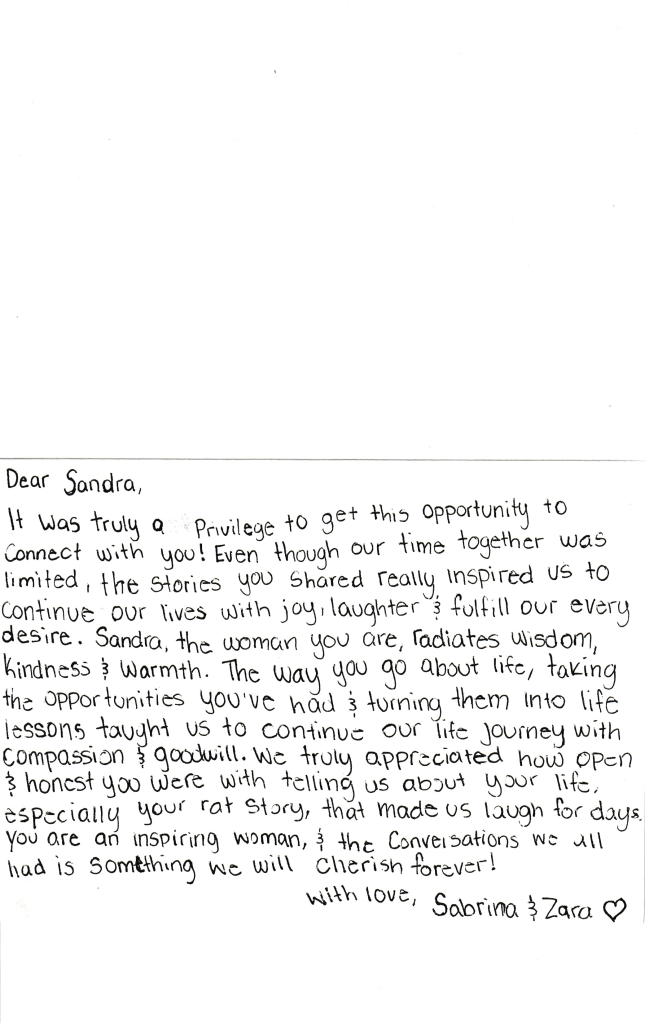 Dear Sandra,
It was truly a Privilege to get this opportunity to
connect with you! Even though our time together was
limited, the stories you shared really inspired us to
continue our lives with joy, laughter & fulfill our every
desire. Sandra, the woman you are, radiates wisdom,
kindness & warmth. The way you go about life, taking
the opportunities you've had & turning them into life
lessons taught us to continue our life journey with
compassion & goodwill. We truly appreciated how open
& honest you were with telling us about your life,
especially your rat story, that made us laugh for days.
You are an inspiring woman, & the conversations we all
had is something we will cherish forever!
With love, Sabrina & Zara ♡